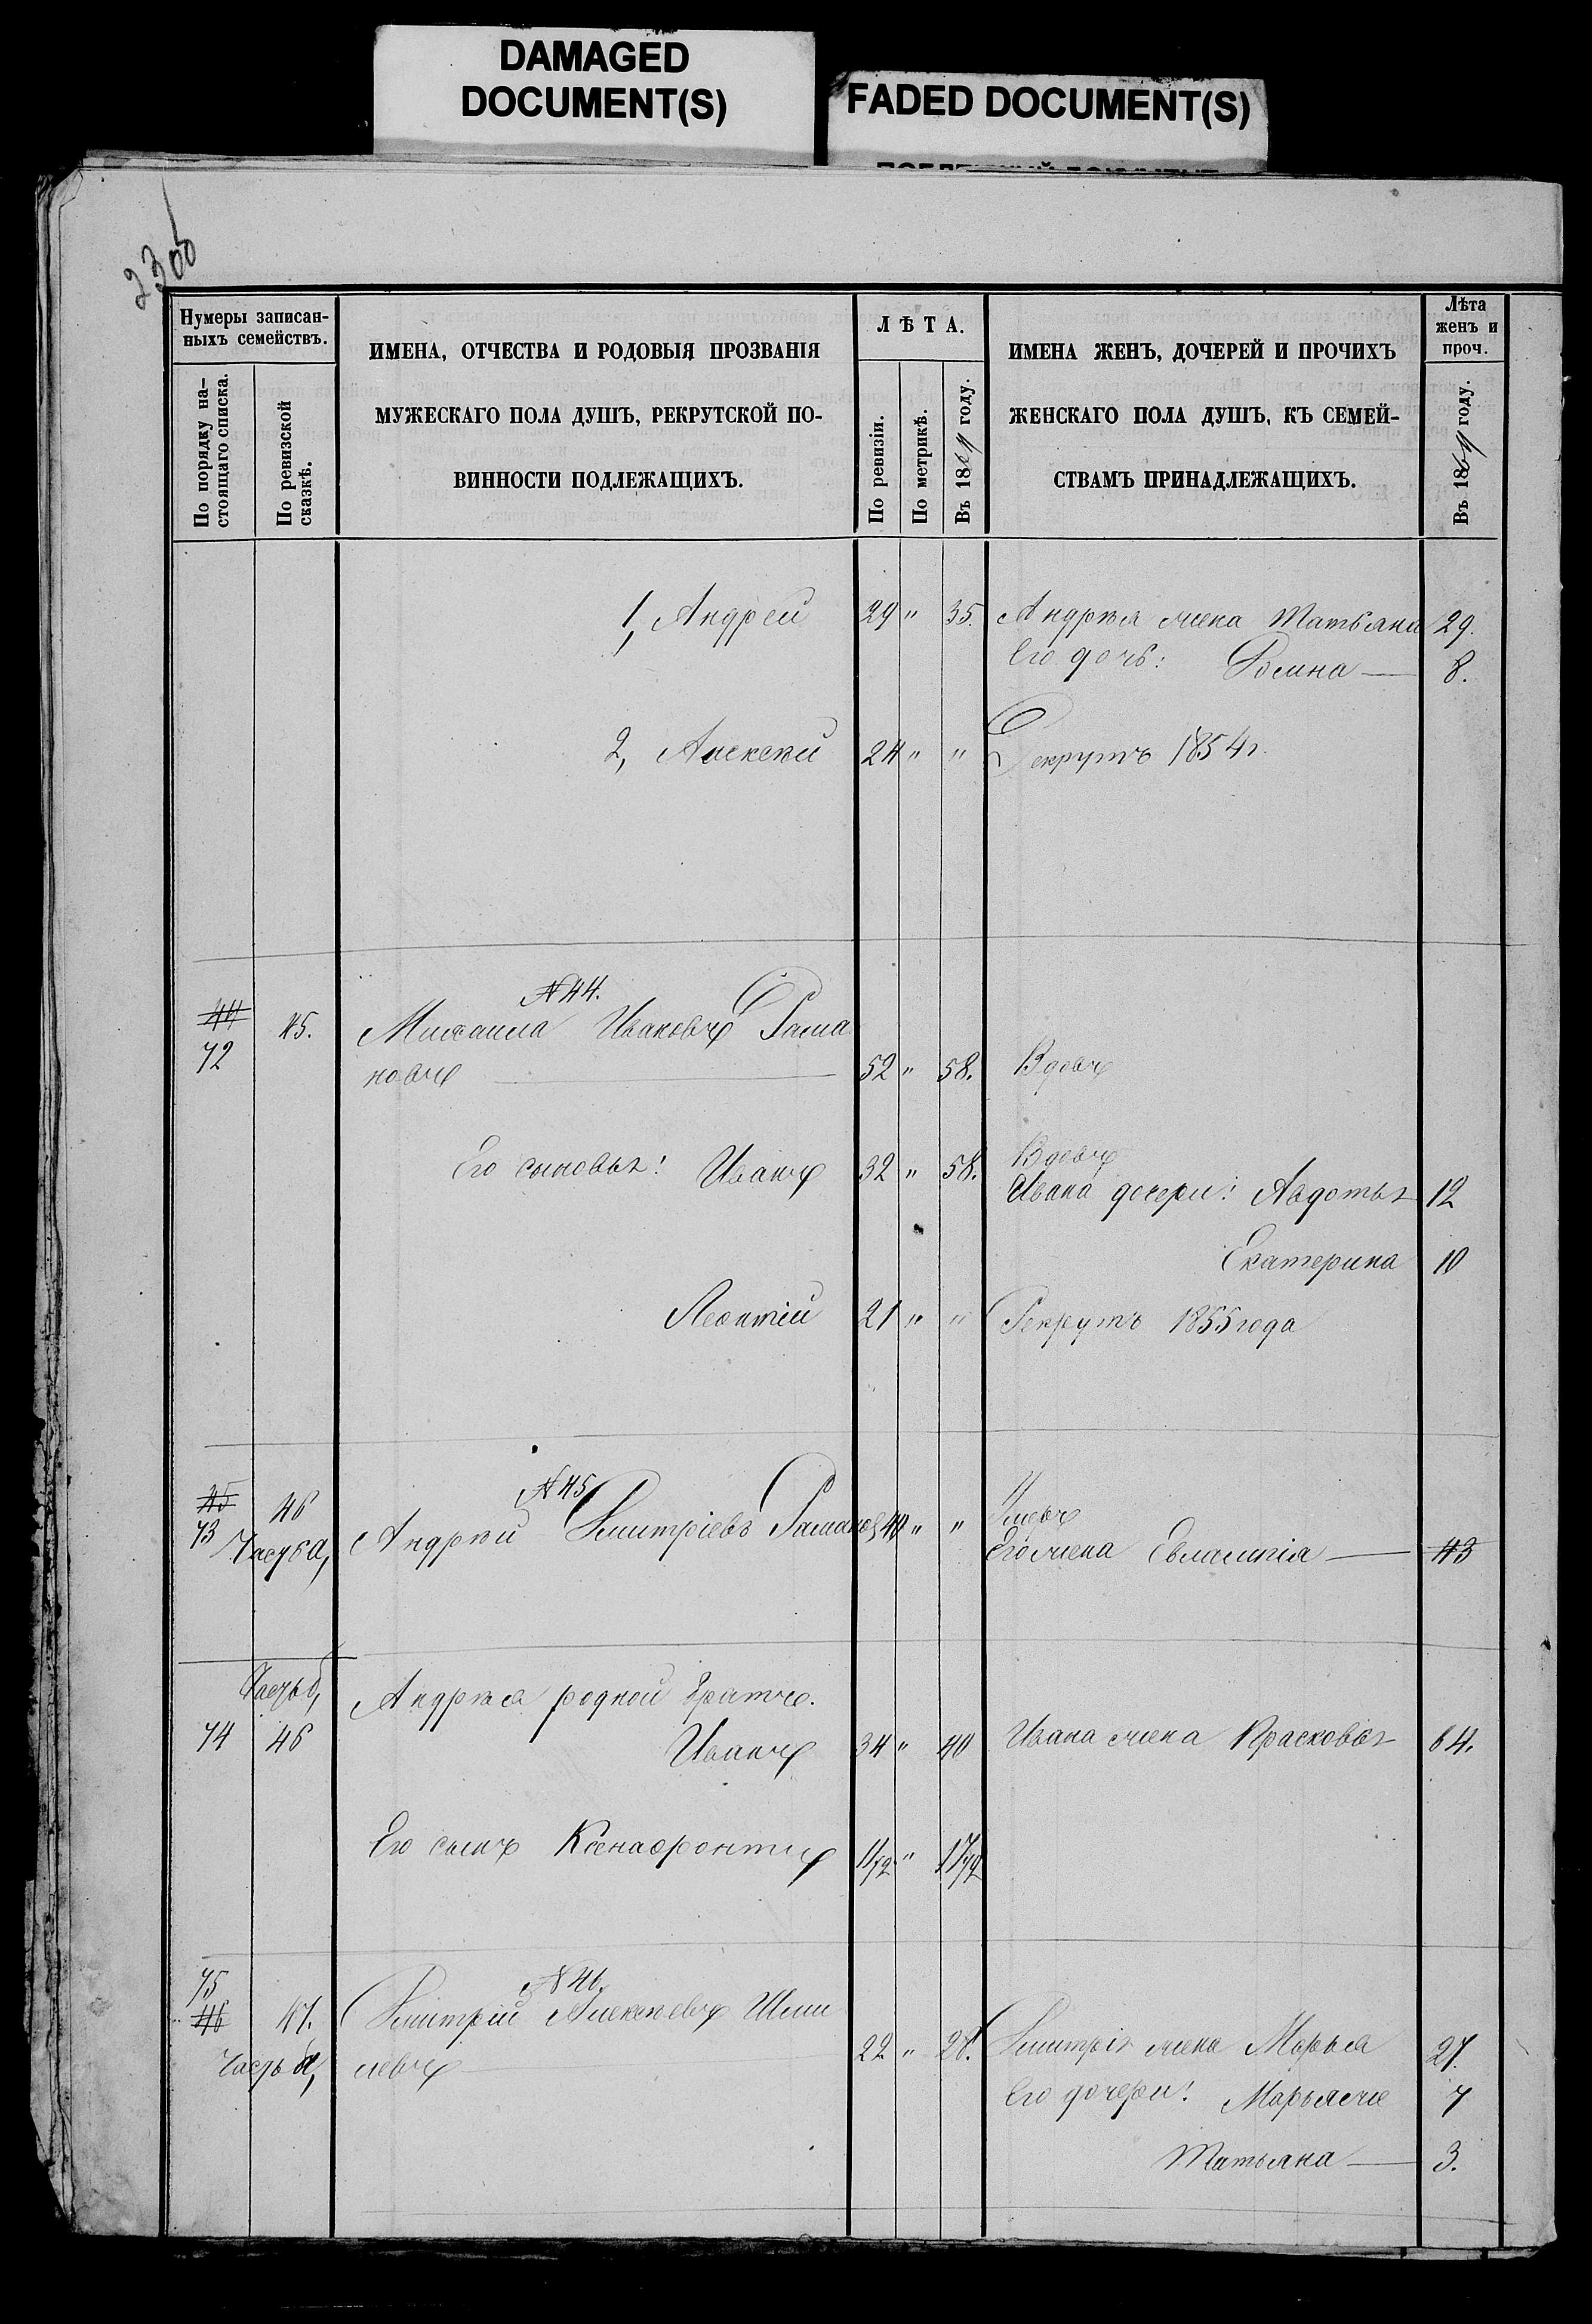 DAMAGED
DOCUMENT(S)
FADED DOCUMENT(S)
2300
Нумеры записан-
ныхъ семействъ.
По порядку на-
стоящаго списка.
По ревизской
сказкѣ.
ИМЕНА, ОТЧЕСТВА И РОДОВЫЯ ПРОЗВАНІЯ
МУЖЕСКАГО ПОЛА ДУШЪ, РЕКРУТСКОЙ ПО-
ВИННОСТИ ПОДЛЕЖАЩИХЪ.
ЛѢТА.
По ревизіи.
По метрикѣ.
Въ 1864 году.
ИМЕНА ЖЕНЪ, ДОЧЕРЕЙ И ПРОЧИХЪ
ЖЕНСКАГО ПОЛА ДУШЪ, КЪ СЕМЕЙ-
СТВАМЪ ПРИНАДЛЕЖАЩИХЪ.
Лѣта
женъ и
проч.
Въ 1864 году.
1, Андрей 29 " 35. Андрея жена Татьяна 29.
Его дочь: 8.
2, Алексѣй 24 " " Рекрутъ 1854 г.
N 44.
44 45. Михаила Ивановъ Рама
72 новъ 52 " 58. Вдовъ
Его сыновья: Иванъ 32 " 58. Вдовъ
Ивана дочери: Авдотья 12
Екатерина 10
Леонтій 21 " " Рекрутъ 1855 года
N 45
45 46 Андрей Дмитріевъ 44 " "
73 Часть а, Его жена Евлампія 43
Часть б, Андрея родной братъ.
74 46 Иванъ 34 " 40 Ивана жена Прасковья 64.
Его сынъ 11/12 "
75 N 46.
46 47. Дмитрій Алексѣевъ Шми
Часть а, левъ 22 " 28. Дмитрія жена Марья 27.
Его дочери: 7
Татьяна 3.